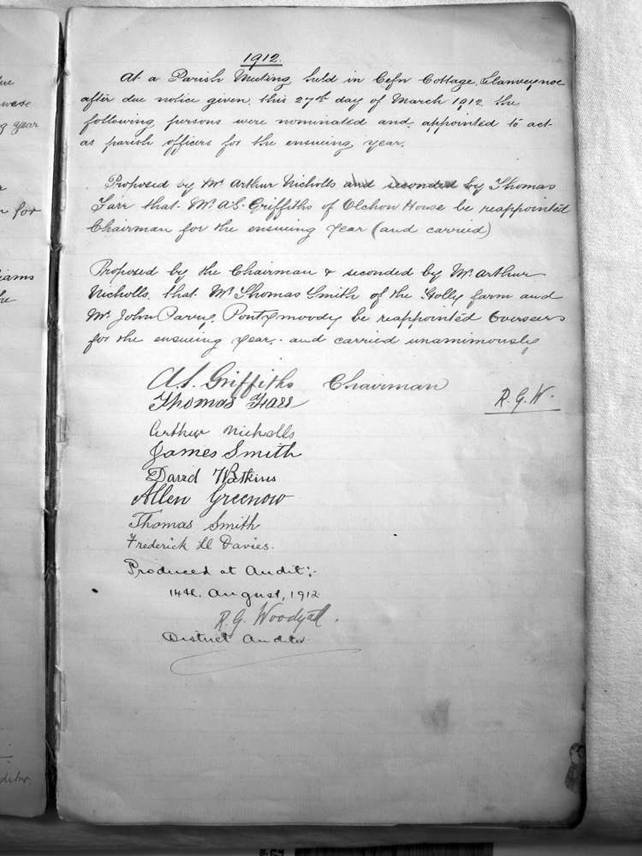 1912
At a Parish Meeting held in Cefn Cottage, Llanveynoe
after due notice given, this 27th day of March 1912 the
following persons were nominated and appointed to act
as parish officers for the ensuing year.
Proposed by Mr Arthur Nicholls and seconded by Thomas
Farr that Mr A.L. Griffiths of Olchon House be reappointed
Chairman for the ensuing year (and carried)
Proposed by the Chairman & seconded by Mr Arthur
Nicholls, that Mr Thomas Smith of the Holly farm and
Mr. John Parry, be reappointed Overseers
for the ensuing year, and carried unanimously
A.L. Griffiths Chairman
Thomas Farr
R.G.W.
Arthur Nicholls
James Smith
David Watkins
Allen Greenow
Thomas Smith
Frederick Davies.
Produced at Audit:-
14th August, 1912
R.G. Woodyatt.
District Auditor
year
for
iams
the